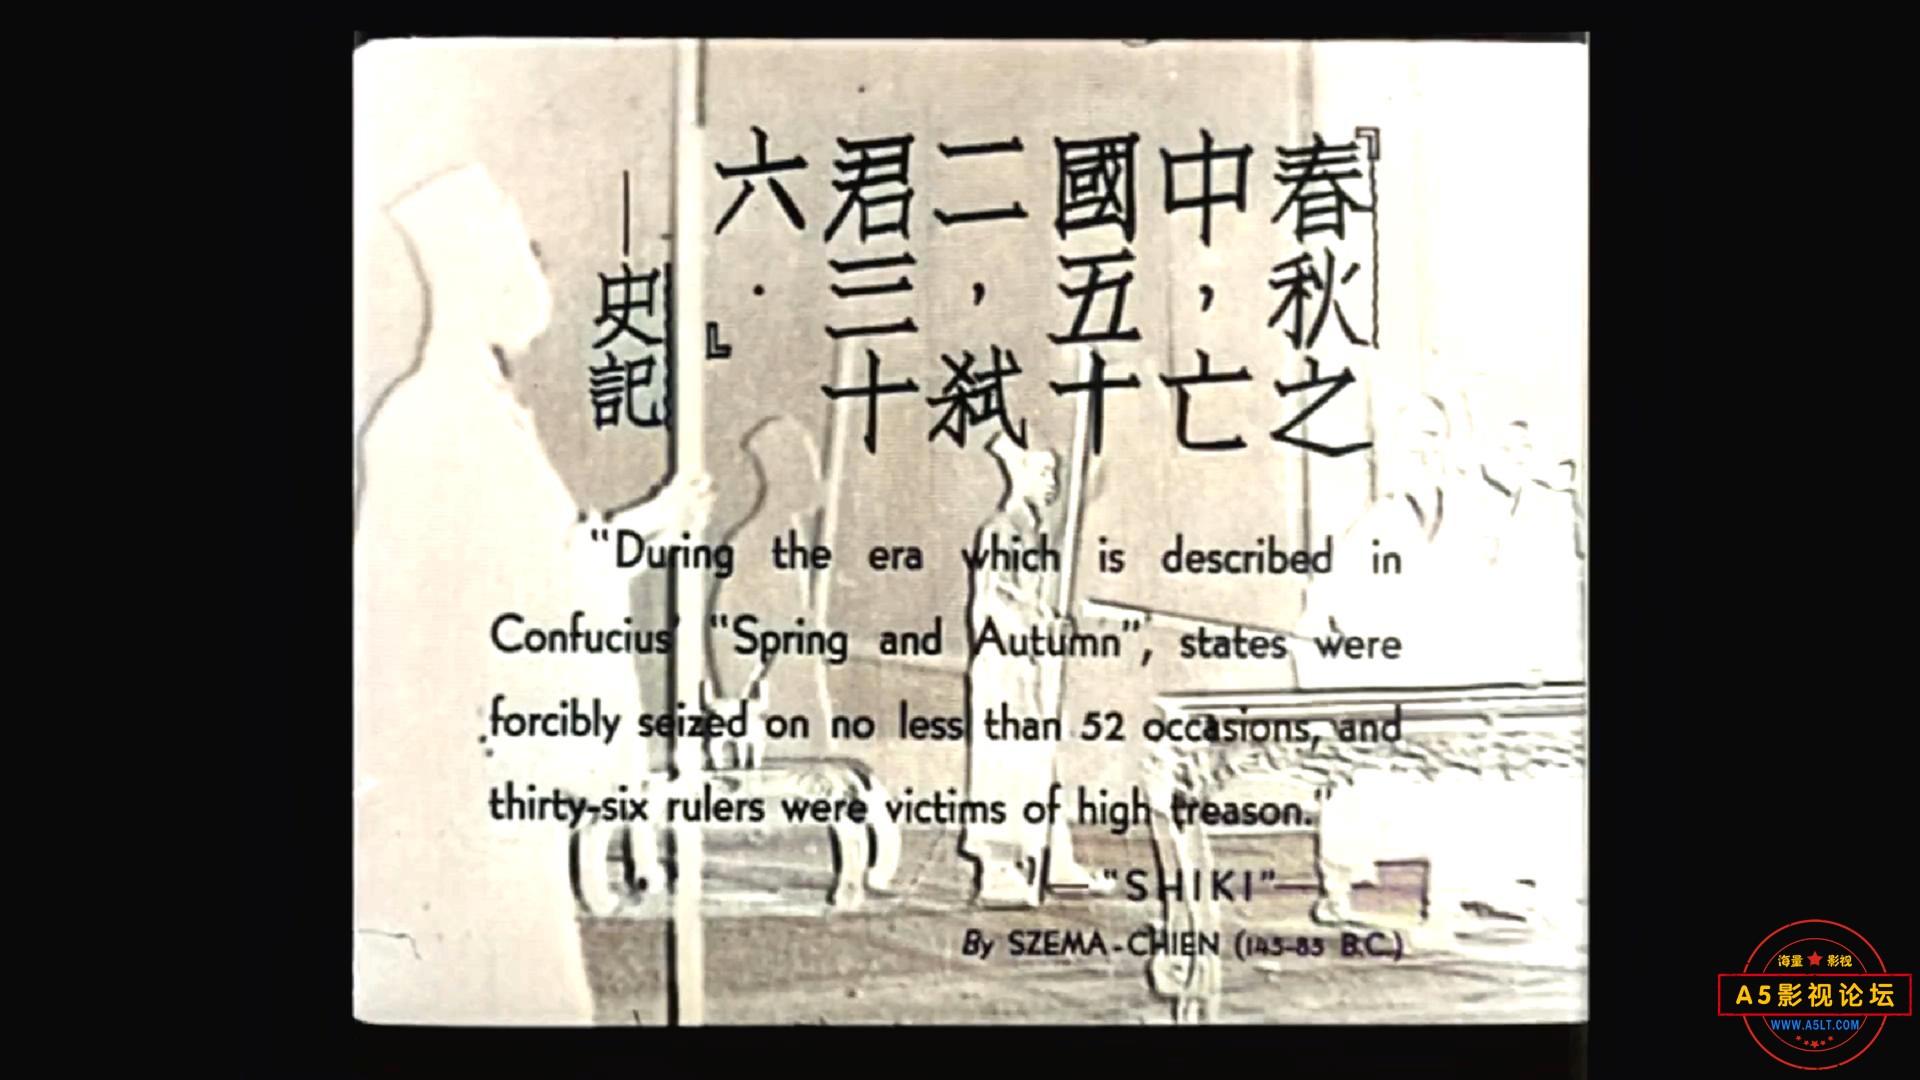 『春秋之
中，亡
國五十
二，弑
君三十
六．』
—史記
"During the era which is described in
Confucius' "Spring and Autumn", states were
forcibly seized on no less than 52 occasions, and
thirty-six rulers were victims of high treason."
—"SHIKI"—
By SZEMA-CHIEN (145-85 B.C.)
海量★影视
A5影视论坛
WWW.A5LT.COM